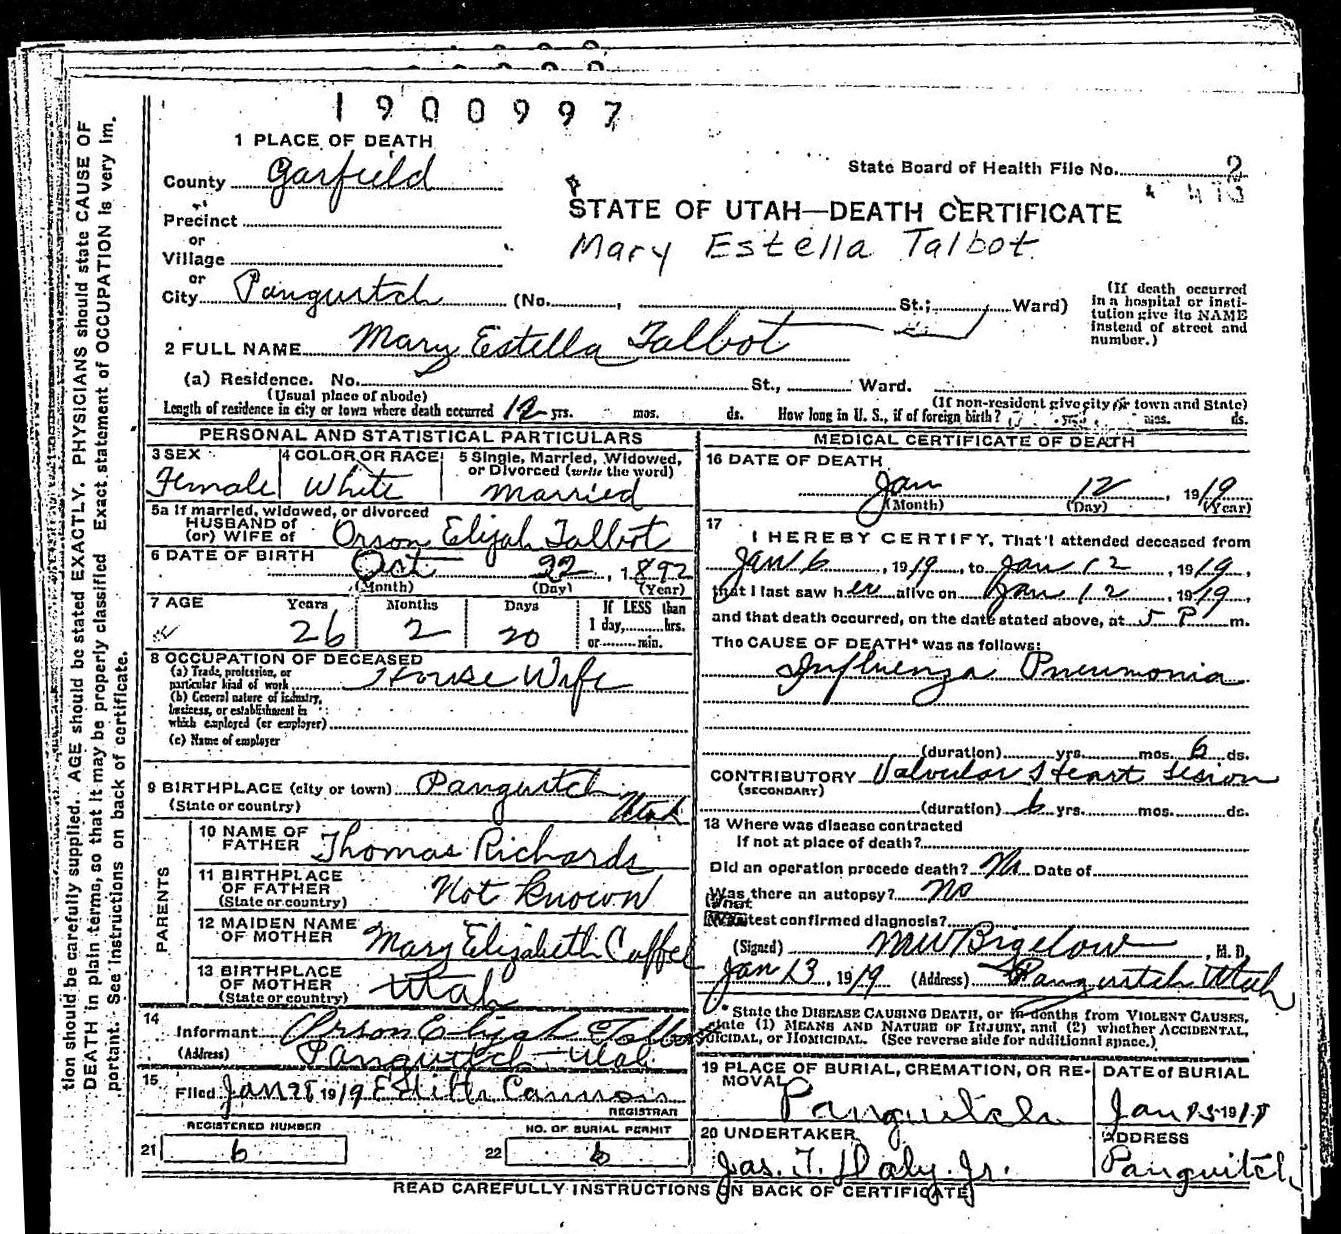 1900997
1 PLACE OF DEATH
County Garfield
State Board of Health File No. 2
Precinct
or
Village
or
City Panguitch (No. , St.; Ward)
STATE OF UTAH—DEATH CERTIFICATE
Mary Estella Talbot
(If death occurred
in a hospital or insti-
tution give its NAME
instead of street and
number.)
2 FULL NAME Mary Estella Talbot
(a) Residence. No. St., Ward.
(Usual place of abode) (If non-resident give city or town and State)
Length of residence in city or town where death occurred 12 yrs. mos. ds. How long in U. S., if of foreign birth? mos. ds.
PERSONAL AND STATISTICAL PARTICULARS
3 SEX Female
4 COLOR OR RACE White
5 Single, Married, Widowed,
or Divorced (write the word)
Married
5a If married, widowed, or divorced
HUSBAND of
(or) WIFE of Orson Elijah Talbot
6 DATE OF BIRTH Oct 22, 1892
(Month) (Day) (Year)
7 AGE Years Months Days If LESS than
1 day, hrs.
or min.
26 2 20
8 OCCUPATION OF DECEASED
(a) Trade, profession, or
particular kind of work House Wife
(b) General nature of industry,
business, or establishment in
which employed (or employer)
(c) Name of employer
9 BIRTHPLACE (city or town) Panguitch
(State or country) Utah
PARENTS
10 NAME OF
FATHER Thomas Richards
11 BIRTHPLACE
OF FATHER
(State or country) Not Known
12 MAIDEN NAME
OF MOTHER Mary Elizabeth
13 BIRTHPLACE
OF MOTHER
(State or country) Utah
14
Informant Orson Elijah Talbot
(Address) Panguitch Utah
15
Filed Jan 1919 Edith
REGISTRAR
REGISTERED NUMBER
21 6
NO. OF BURIAL PERMIT
22 6
MEDICAL CERTIFICATE OF DEATH
16 DATE OF DEATH
Jan 12, 1919
(Month) (Day) (Year)
17
I HEREBY CERTIFY, That I attended deceased from
Jan 6, 1919, to Jan 12, 1919,
that I last saw her alive on Jan 12, 1919,
and that death occurred, on the date stated above, at 5 P m.
The CAUSE OF DEATH* was as follows:
Influenza Pneumonia
(duration) yrs. mos. 6 ds.
CONTRIBUTORY Valvular Heart Lesion
(SECONDARY)
(duration) 6 yrs. mos. ds.
18 Where was disease contracted
If not at place of death?
Did an operation precede death? No Date of
Was there an autopsy? No
What test confirmed diagnosis?
(Signed) MW Bigelow, M. D.
Jan 13, 1919 (Address) Panguitch Utah
*State the DISEASE CAUSING DEATH, or in deaths from VIOLENT CAUSES,
state (1) MEANS AND NATURE OF INJURY, and (2) whether ACCIDENTAL,
SUICIDAL, or HOMICIDAL. (See reverse side for additional space.)
19 PLACE OF BURIAL, CREMATION, OR RE-
MOVAL Panguitch
DATE of BURIAL
Jan
20 UNDERTAKER
Jas. T. Daly Jr.
ADDRESS
Panguitch
READ CAREFULLY INSTRUCTIONS ON BACK OF CERTIFICATE
tion should be carefully supplied. AGE should be stated EXACTLY. PHYSICIANS should state CAUSE OF
DEATH in plain terms, so that it may be properly classified Exact statement of OCCUPATION is very im.
portant. See instructions on back of certificate.